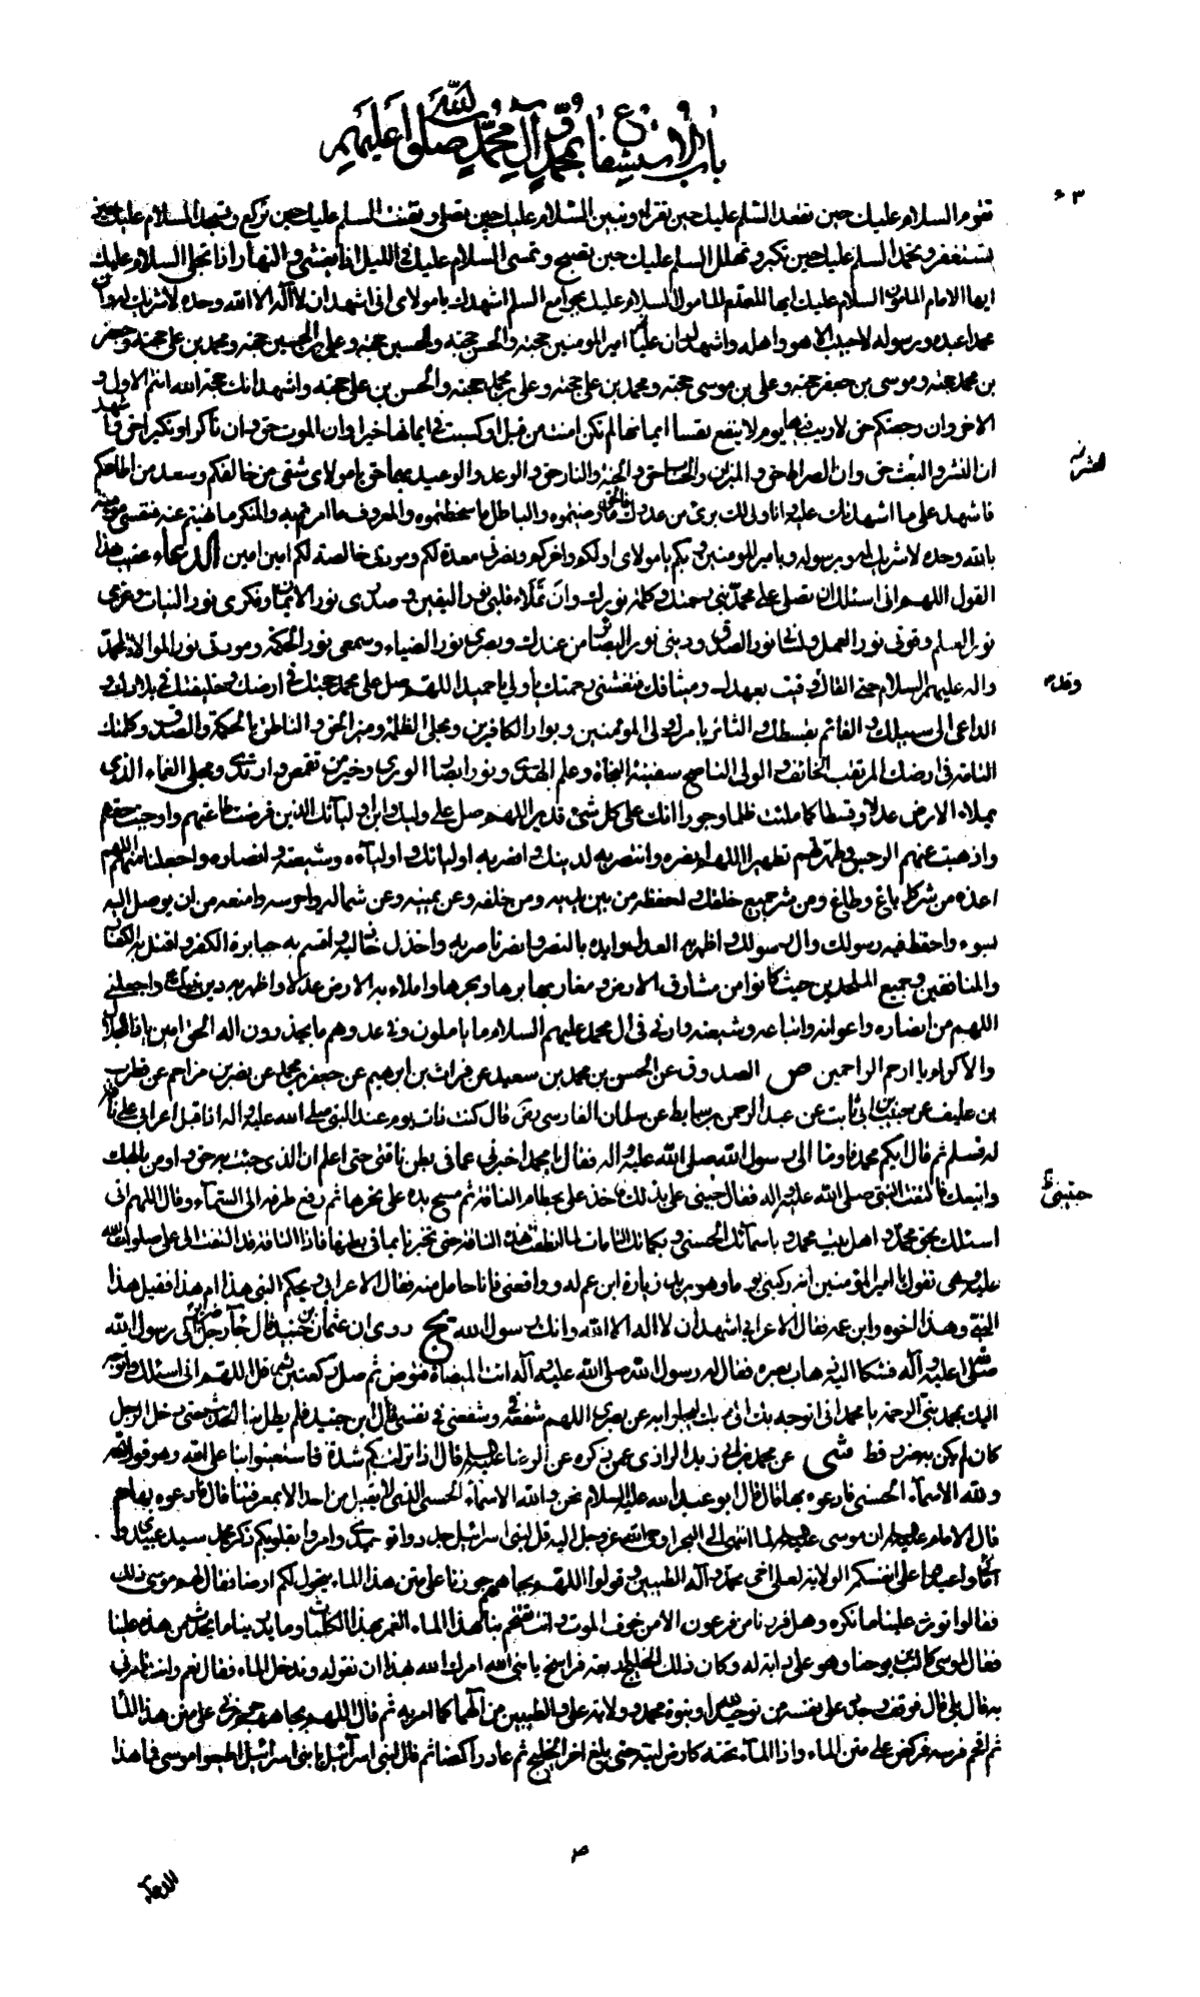 باب الاستشفاع بمحمد وآل محمد صلوات الله عليهم
تقوم السلام عليك حين تقعد السلم عليك حين تقرأ وتبين السلام عليك حين تصلي وتقنت السلم عليك حين تركع وتسجد السلام عليك حين
تستغفر وتحمد السلم عليك حين تكبر وتهلل السلم عليك حين تصبح وتمسى السلام عليك في الليل اذا يغشى والنهار اذا تجلى السلام عليك
ايها الامام المامون السلام عليك ايها المقدم المامول السلام عليك بجوامع السلم اشهدك يا مولاى انى اشهد ان لا اله الا الله وحده لا شريك له وان
محمدا عبده ورسوله لا حبيب الا هو واهله واشهد ان عليا امير المومنين حجته والحسن حجته والحسين حجته وعلى بن الحسين حجته ومحمد بن على حجته وجعفر
بن محمد حجته وموسى بن جعفر حجته وعلى بن موسى حجته ومحمد بن على حجته وعلى بن محمد حجته والحسن بن على حجته واشهد انك حجة الله انتم الاول و
الاخر وان رجعتكم حق لا ريب فيها يوم لا ينفع نفسا ايمانها لم تكن امنت من قبل او كسبت في ايمانها خيرا وان الموت حق وان ناكرا ونكيرا حق واشهد
ان النشر والبعث حق وان الصراط حق والميزان والحساب حق والجنة والنار حق والوعد والوعيد بهما حق يا مولاى شقى من خالفكم وسعد من اطاعكم
فاشهد على ما اشهدتك عليه وانا ولى لك برئ من عدوك فالحق ما رضيتموه والباطل ما سخطتموه والمعروف ما امرتم به والمنكر ما نهيتم عنه فنفسى مومنة
بالله وحده لا شريك له وبرسوله وبامير المومنين وبكم يا مولاى اولكم واخركم ونصرتى معدة لكم ومودتى خالصة لكم امين امين الدعاء عقيب هذا
القول اللهم انى اسئلك ان تصلى على محمد نبى رحمتك وكلمة نورك وان تملاء قلبى نور اليقين وصدرى نور الايمان وفكرى نور النيات وعزمى
نور العلم وقوتى نور العمل ولسانى نور الصدق ودينى نور البصائر من عندك وبصرى نور الضياء وسمعى نور الحكمة ومودتى نور الموالاة لمحمد
واله عليهم السلام حتى القاك وقد وفيت بعهدك وميثاقك فتغشنى رحمتك يا ولى يا حميد اللهم صل على محمد حجتك في ارضك وخليفتك في بلادك و
الداعى الى سبيلك والقائم بقسطك والثائر بامرك ولى المؤمنين وبوار الكافرين ومجلى الظلمة ومنير الحق والناطق بالحكمة والصدق وكلمتك
التامة في ارضك المرتقب الخائف والولى الناصح سفينة النجاة وعلم الهدى ونور ابصار الورى وخير من تقمص وارتدى ومجلى العماء الذى
يملاء الارض عدلا وقسطا كما ملئت ظلما وجورا انك على كل شئ قدير اللهم صل على وليك وابن اوليائك الذين فرضت طاعتهم واوجبت حقهم
واذهبت عنهم الرجس وطهرتهم تطهيرا اللهم انصره وانتصر به لدينك وانصر به اوليائك واولياءه وشيعته وانصاره واجعلنا منهم اللهم
اعذه من شر كل باغ وطاغ ومن شر جميع خلقك واحفظه من بين يديه ومن خلفه وعن يمينه وعن شماله واحرسه وامنعه من ان يوصل اليه
بسوء واحفظ فيه رسولك وال رسولك واظهر به العدل وايده بالنصر وانصر ناصريه واخذل خاذليه واقصم به جبابرة الكفر واقتل به الكفار
والمنافقين وجميع الملحدين حيث كانوا من مشارق الارض ومغاربها برها وبحرها واملاء به الارض عدلا واظهر به دين نبيك واجعلنى
اللهم من انصاره واعوانه واتباعه وشيعته وارنى في ال محمد عليهم السلام ما ياملون وفي عدوهم ما يحذرون اله الحق امين يا ذا الجلال
والاكرام يا ارحم الراحمين ص الصدوق عن الحسن بن محمد بن سعيد عن فرات بن ابرهيم عن جعفر بن محمد عن نصر بن مزاحم عن قطرب
بن عليف عن حبيب بن ابى ثابت عن عبد الرحمن بن سابط عن سلمان الفارسى رض قال كنت ذات يوم عند النبي صلى الله عليه واله اذ اقبل اعرابى على ناقة
له فسلم ثم قال ايكم محمد فاومئ الى رسول الله صلى الله عليه واله فقال يا محمد اخبرنى عما في بطن ناقتى حتى اعلم ان الذى جئت به حق واومن بالهك
واتبعك فالتفت النبى صلى الله عليه واله فقال حبيبى على يدلك فاخذ على بخطام الناقة ثم مسح يده على نحرها ثم رفع طرفه الى السماء وقال اللهم انى
اسئلك بحق محمد واهل بيت محمد وباسمائك الحسنى وبكلماتك التامات لما انطقت هذه الناقة حتى تخبرنا بما في بطنها فاذا الناقة قد التفت الى على صلوات الله
عليه وهى تقول يا امير المؤمنين انه ركبنى يوما وهو يريد زيارة ابن عم له وواقعنى فانا حامل منه فقال الاعرابى ويحكم النبى هذا ام هذا فقيل هذا
النبى وهذا اخوه وابن عمه فقال الاعرابى اشهد ان لا اله الا الله وانك رسول الله يج روى ان عثمان بن جنيد قال جاء رجل ضرير الى رسول الله
صلى الله عليه وآله فشكا اليه ذهاب بصره فقال له رسول الله صلى الله عليه وآله ائت الميضاة فتوضأ ثم صل ركعتين ثم قل اللهم انى اسئلك واتوجه
اليك بمحمد نبى الرحمة يا محمد انى اتوجه بك الى ربك ليجلو به عن بصرى اللهم شفعه في وشفعنى في نفسى قال ابن جنيد فلم يطل بنا الحديث حتى دخل الرجل
كان لم يكن به ضر قط شى عن محمد بن ابى زيد الرازى عمن ذكره عن الرضا عليه السلم قال اذا نزلت بكم شدة فاستعينوا بنا على الله وهو قول الله
ولله الاسماء الحسنى فادعوه بها قال قال ابو عبد الله عليه السلام نحن والله الاسماء الحسنى الذى لا يقبل من احد الا بمعرفتنا قال فادعوه بها م
قال الامام عليه السلم ان موسى عليه السلم لما انتهى الى البحر اوحى الله عز وجل اليه قل لبنى اسرائيل جددوا توحيدى وامروا بقلوبكم ذكر محمد سيد عبيدى و
امائى واعيدوا على انفسكم الولاية لعلى اخى محمد وآله الطيبين وقولوا اللهم بجاههم جوزنا على متن هذا الماء يتحول لكم ارضا فقال لهم موسى ذلك
فقالوا تورد علينا ما نكره وهل فررنا من فرعون الا من خوف الموت وانت تقتحم بنا هذا الماء الغمر بهذه الكلمات وما يدرينا ما يحدث من هذه علينا
فقال لموسى كالب بن يوحنا وهو على دابة له وكان ذلك الخليج اربعة فراسخ يا نبى الله امرك الله بهذا ان نقوله وندخل الماء فقال نعم وانت تامرنى
به قال بلى قال فوقف وجدد على نفسه من توحيد الله ونبوة محمد وولاية على والطيبين من آلهما كما امر به ثم قال اللهم بجاههم جوزنى على متن هذا الماء
ثم اقحم فرسه فركض على متن الماء واذا الماء تحته كارض لينة حتى بلغ اخر الخليج ثم عاد راكضا ثم قال لبنى اسرآئيل يا بنى اسرائيل اطيعوا موسى فما هذا
حبيبى
الدعاء